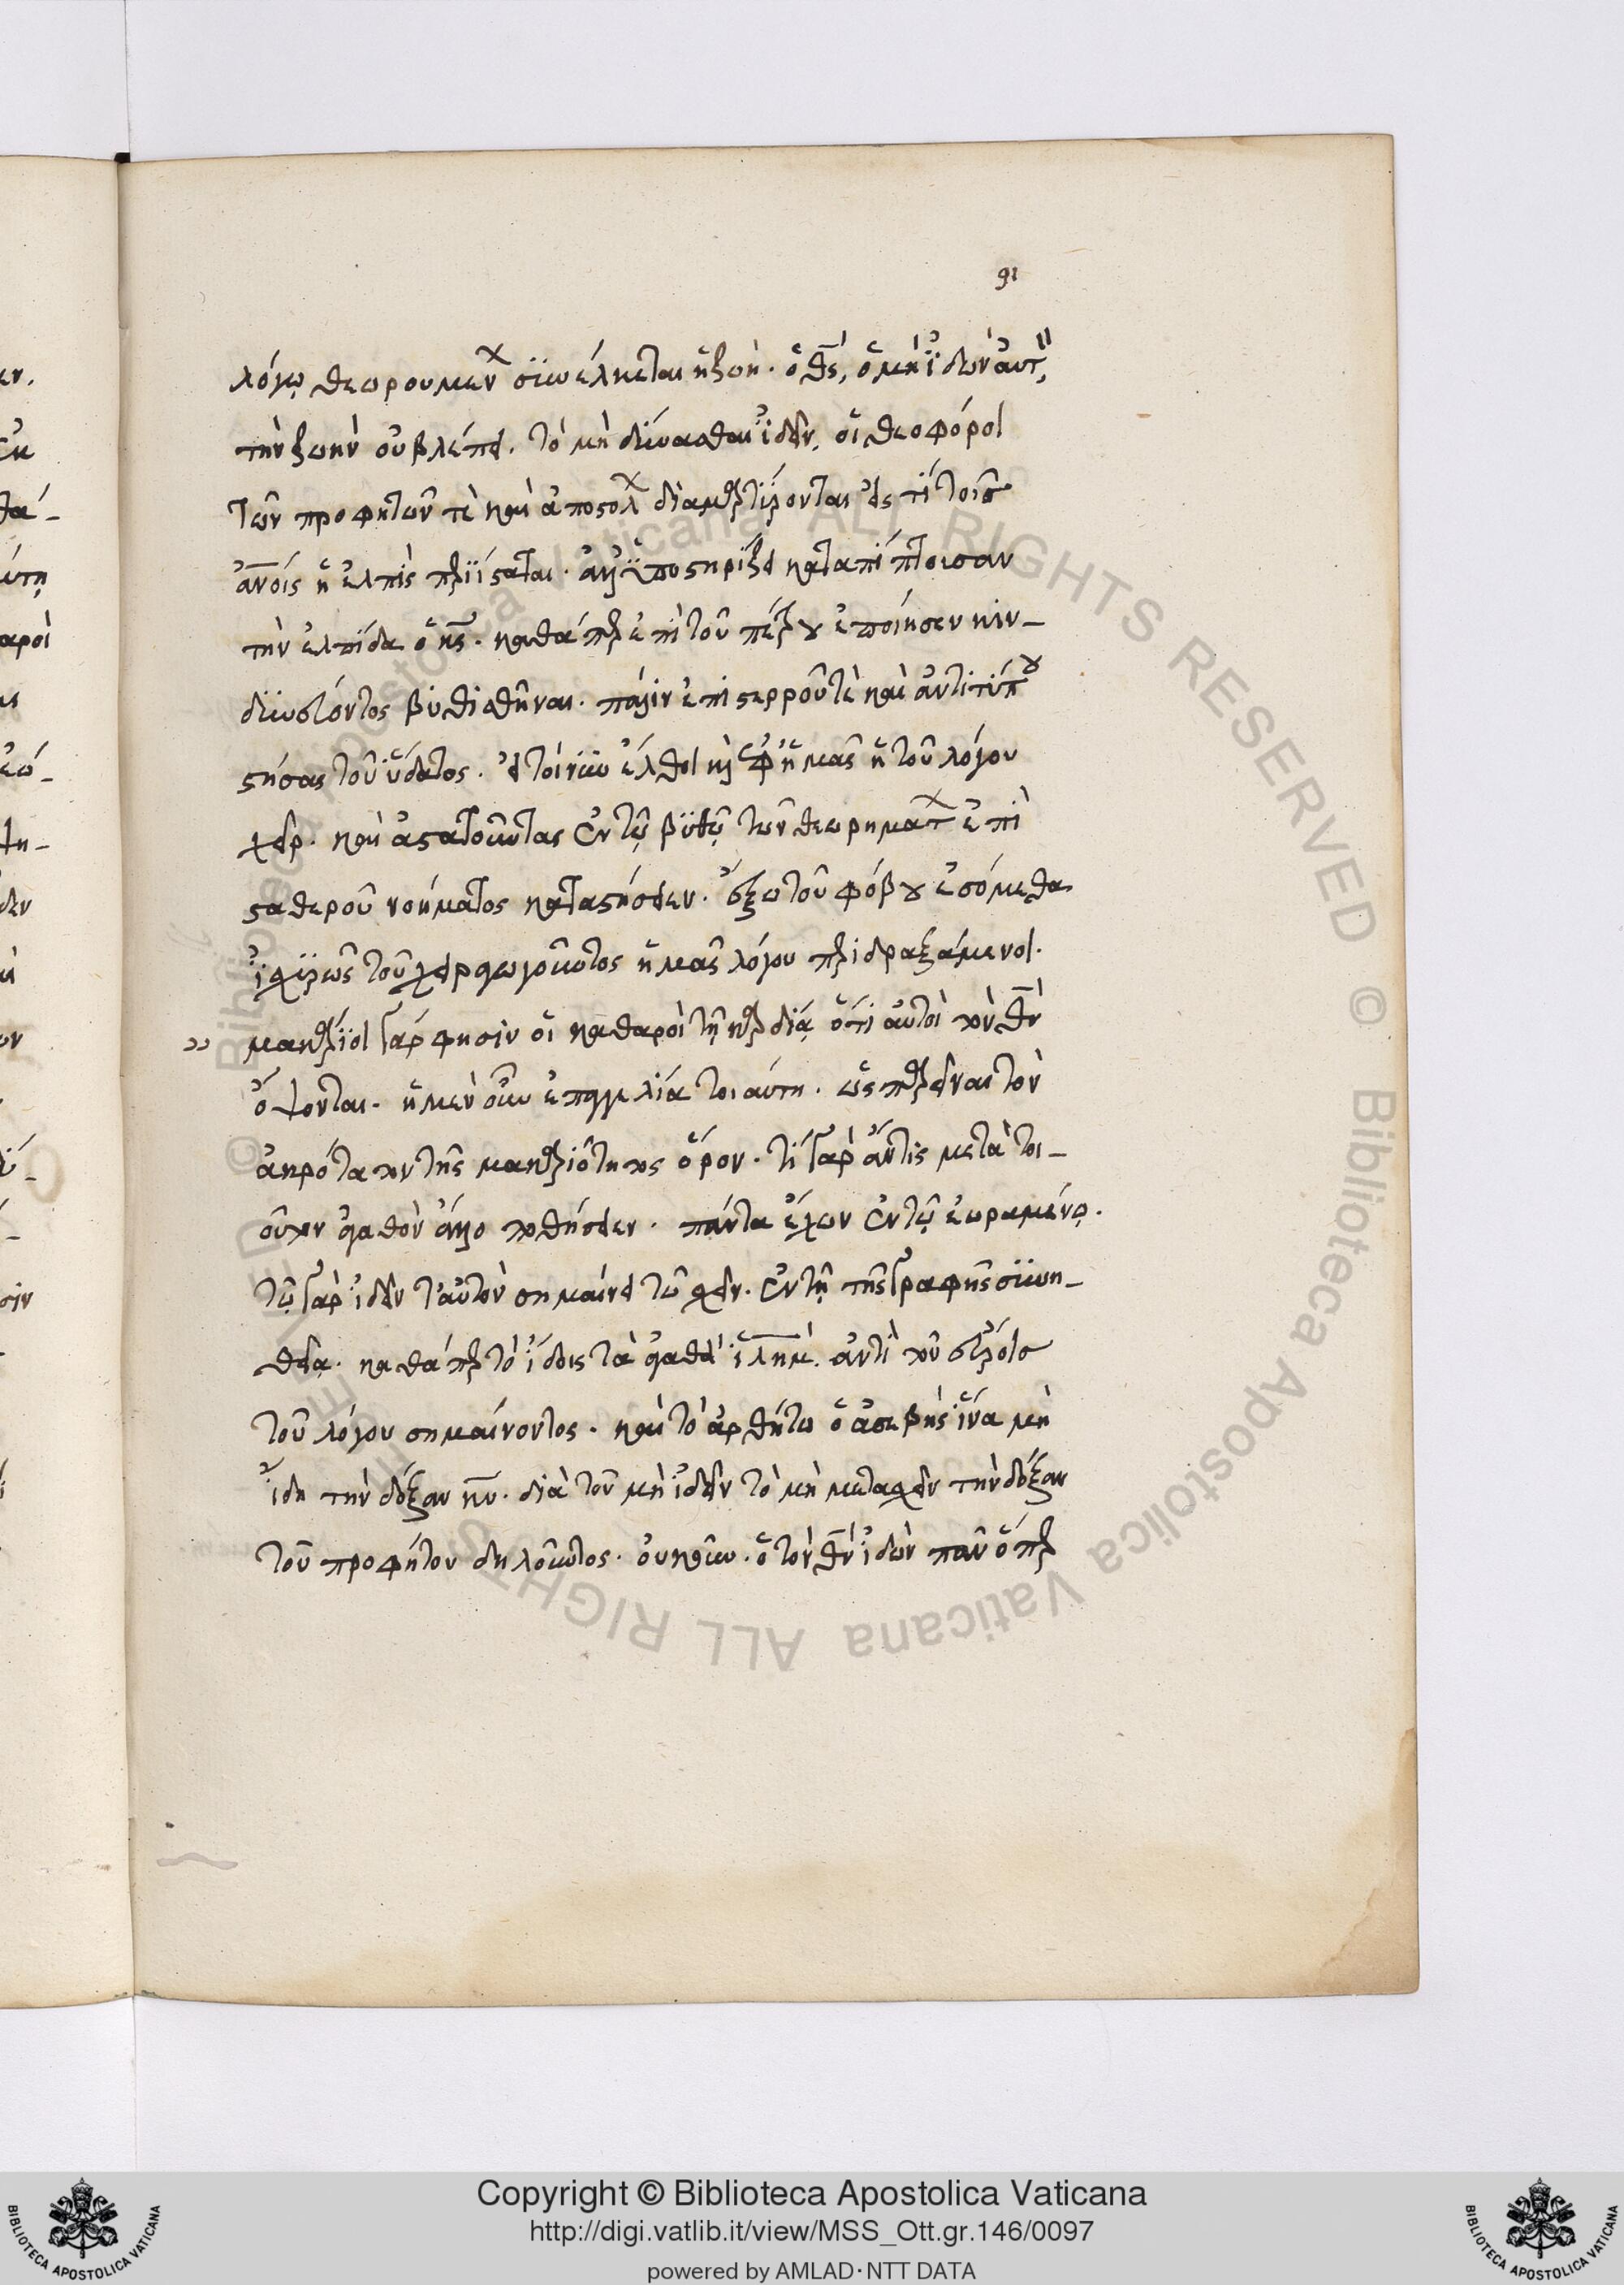 91
λόγω, θεωρουμέν(ων) συνέλκεται ἡ ζωή. ὁ θς, ὁ μὴ ἰδὼν αὐτ,
τὴν ζωὴν οὐ βλέπει. τὸ μὴ δύνασθαι ἰδεῖν, οἱ θεοφόροι
τῶν προφητῶν τὲ καὶ ἀποστόλ(ων) διαμαρτύρονται εἰς τί τοῖς
ἀνοις ἡ ἐλπὶς περιΐσταται. ἀλλ' ὑποστηρίζει καταπίπτουσαν
τὴν ἐλπίδα ὁ κς. καθάπερ ἐπὶ τοῦ πέτρου ἐποίησεν κιν-
δυνεύοντος βυθισθῆναι. πάλιν ἐπὶ στερροῦ τὲ καὶ ἀντιτύπου
στήσας τοῦ ὕδατος. εἰ τοίνυν ἔλθοι καὶ ἐφ' ἡμᾶς ἡ τοῦ λόγου
χεὶρ. καὶ ἀστατοῦντας ἐν τῶ βυθῶ τῶν θεωρημάτ(ων) ἐπὶ
σταθεροῦ νοήματος καταστήσειεν. ἔξω τοῦ φόβου ἐσόμεθα
ἰσχυρῶς τοῦ χειραγωγοῦντος ἡμᾶς λόγου περιδραξάμενοι.
›› μακάριοι γάρ φησιν οἱ καθαροὶ τῆ καρδία ὅτι αὐτοὶ τὸν θν
ὄψονται. ἡ μὲν οὖν ἐπαγγελία τοιαύτη. ὡς παριέναι τὸν
ἀκρότατον τῆς μακαριότητος ὅρον. τί γὰρ ἄν τις μετὰ τοι-
οῦτον ἀγαθὸν ἄλλο ποθήσειεν. πάντα ἔχων ἐν τῶ ἑωραμένω.
τῶ γὰρ ἰδεῖν ταὐτὸν σημαίνει τῶ σχεῖν. ἐν τῆ τῆς γραφῆς συνη-
θεία. καθάπερ τὸ ἴδοις τὰ ἀγαθὰ ἱλημ. ἀντὶ τοῦ εὕροις
τοῦ λόγου σημαίνοντος. καὶ τὸ ἀρθήτω ὁ ἀσεβὴς ἵνα μὴ
ἴδη τὴν δόξαν κυ. διὰ τοῦ μὴ ἰδεῖν τὸ μὴ μετασχεῖν τὴν δόξαν
τοῦ προφήτου δηλοῦντος. οὐκοῦν. ὁ τὸν θν ἰδὼν πᾶν ὅπερ
Copyright © Biblioteca Apostolica Vaticana
http://digi.vatlib.it/view/MSS_Ott.gr.146/0097
powered by AMLAD·NTT DATA